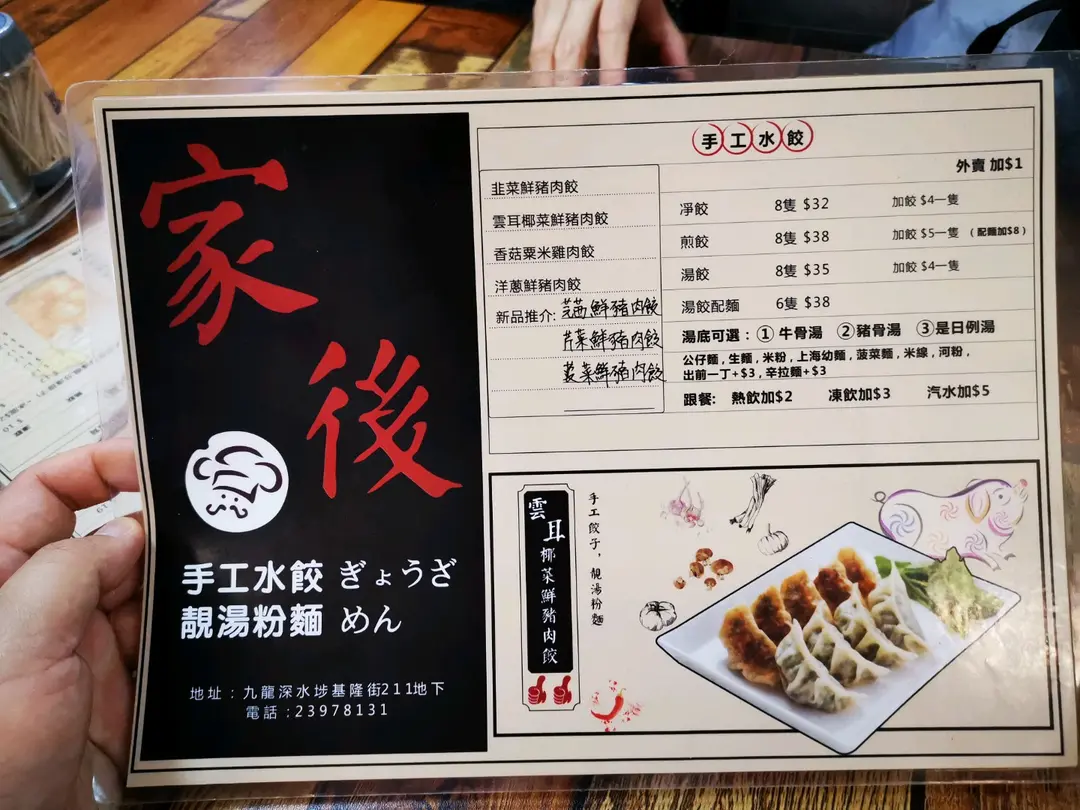 家後
手工水餃 ぎょうざ
靚湯粉麵 めん
地址：九龍深水埗基隆街211地下
電話：23978131
手工水餃
外賣 加$1
韭菜鮮豬肉餃
雲耳椰菜鮮豬肉餃
香菇粟米雞肉餃
洋蔥鮮豬肉餃
新品推介: 芫茜鮮豬肉餃
芹菜鮮豬肉餃
菜鮮豬肉餃
淨餃 8隻 $32 加餃 $4一隻
煎餃 8隻 $38 加餃 $5一隻 (配麵加$8)
湯餃 8隻 $35 加餃 $4一隻
湯餃配麵 6隻 $38
湯底可選：① 牛骨湯 ②豬骨湯 ③是日例湯
公仔麵,生麵,米粉,上海幼麵,菠菜麵,米線,河粉,
出前一丁+$3,辛拉麵+$3
跟餐: 熱飲加$2 凍飲加$3 汽水加$5
雲耳椰菜鮮豬肉餃
手工餃子，靚湯粉麵